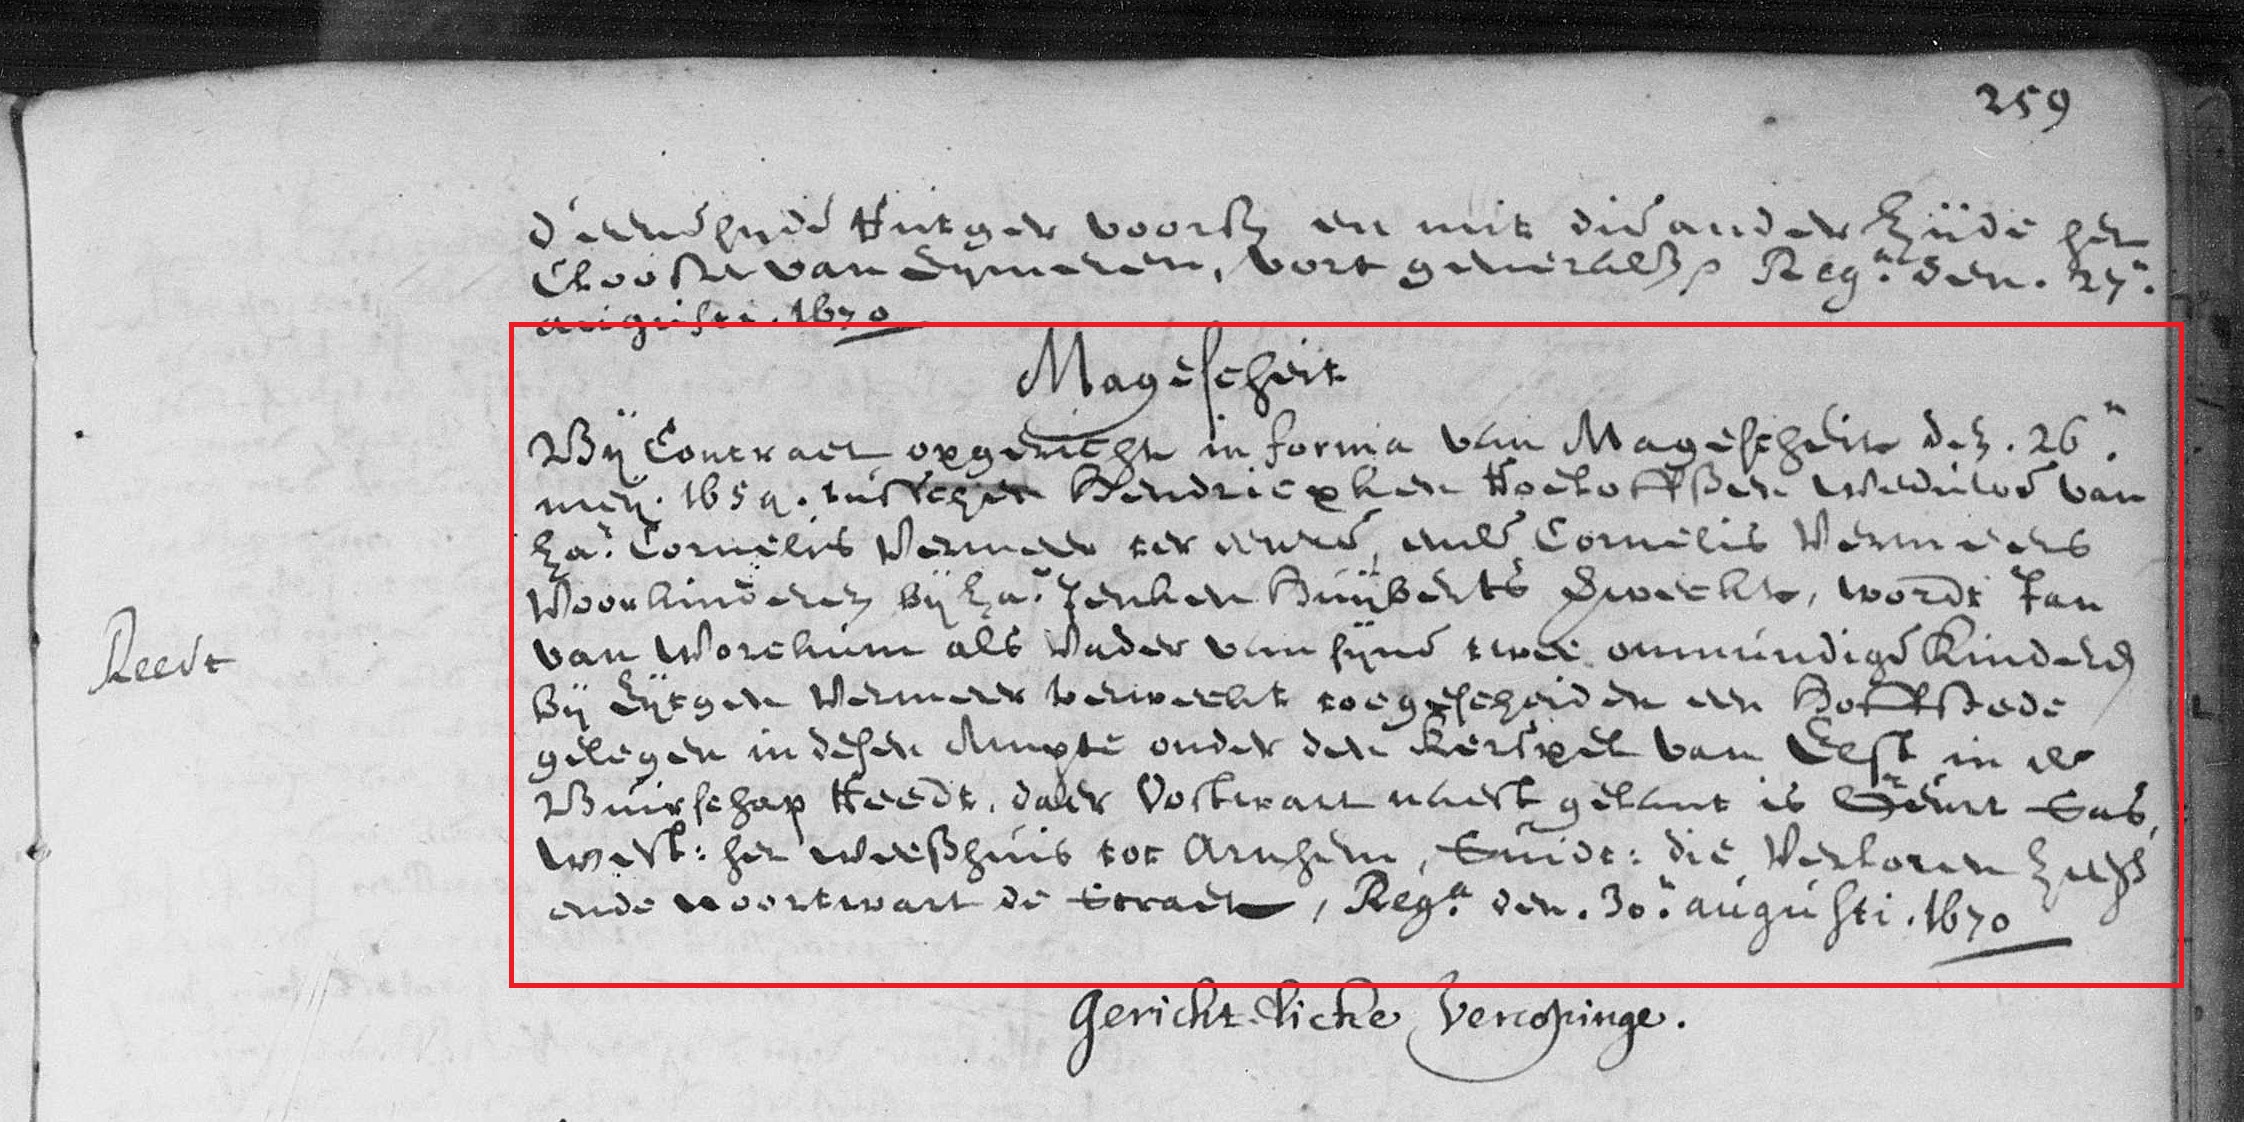 259
d'eene sijde Rutger voorß en mit die ander zijde het
Clooster van Eymeren, vort generalß Reg.ᵗ den. 27.ⁿ
augusti. 1670
Magescheit
Bij Contract opgericht in forma van Magescheit dez. 26.ⁿ
meij. 1659. tusschen Hendricxken Roeloffßen weduwe van
za: Cornelis Vermeer ter eenre, ende Cornelis Vermeers
Voorkinderen bij za: Jenken Huijberts verweckt, wordt Jan
van Worckum als Vader van sijne twee onmundige Kinderen
Reedt
bij Eijtgen Vermeer verweckt toegescheiden een Hoffstede
gelegen in desen Ampte onder den Kerspel van Elst in de
Buirschap Reedt, daer Oostwart naest gelant is Geurt Sas,
west: het weeßhuis tot Arnhem, Suidt: die Verloren Zeegh
ende noortwart de Straet, Reg.ᵗ den. 30.ⁿ augusti. 1670
Gerichtlicke Vercopinge.